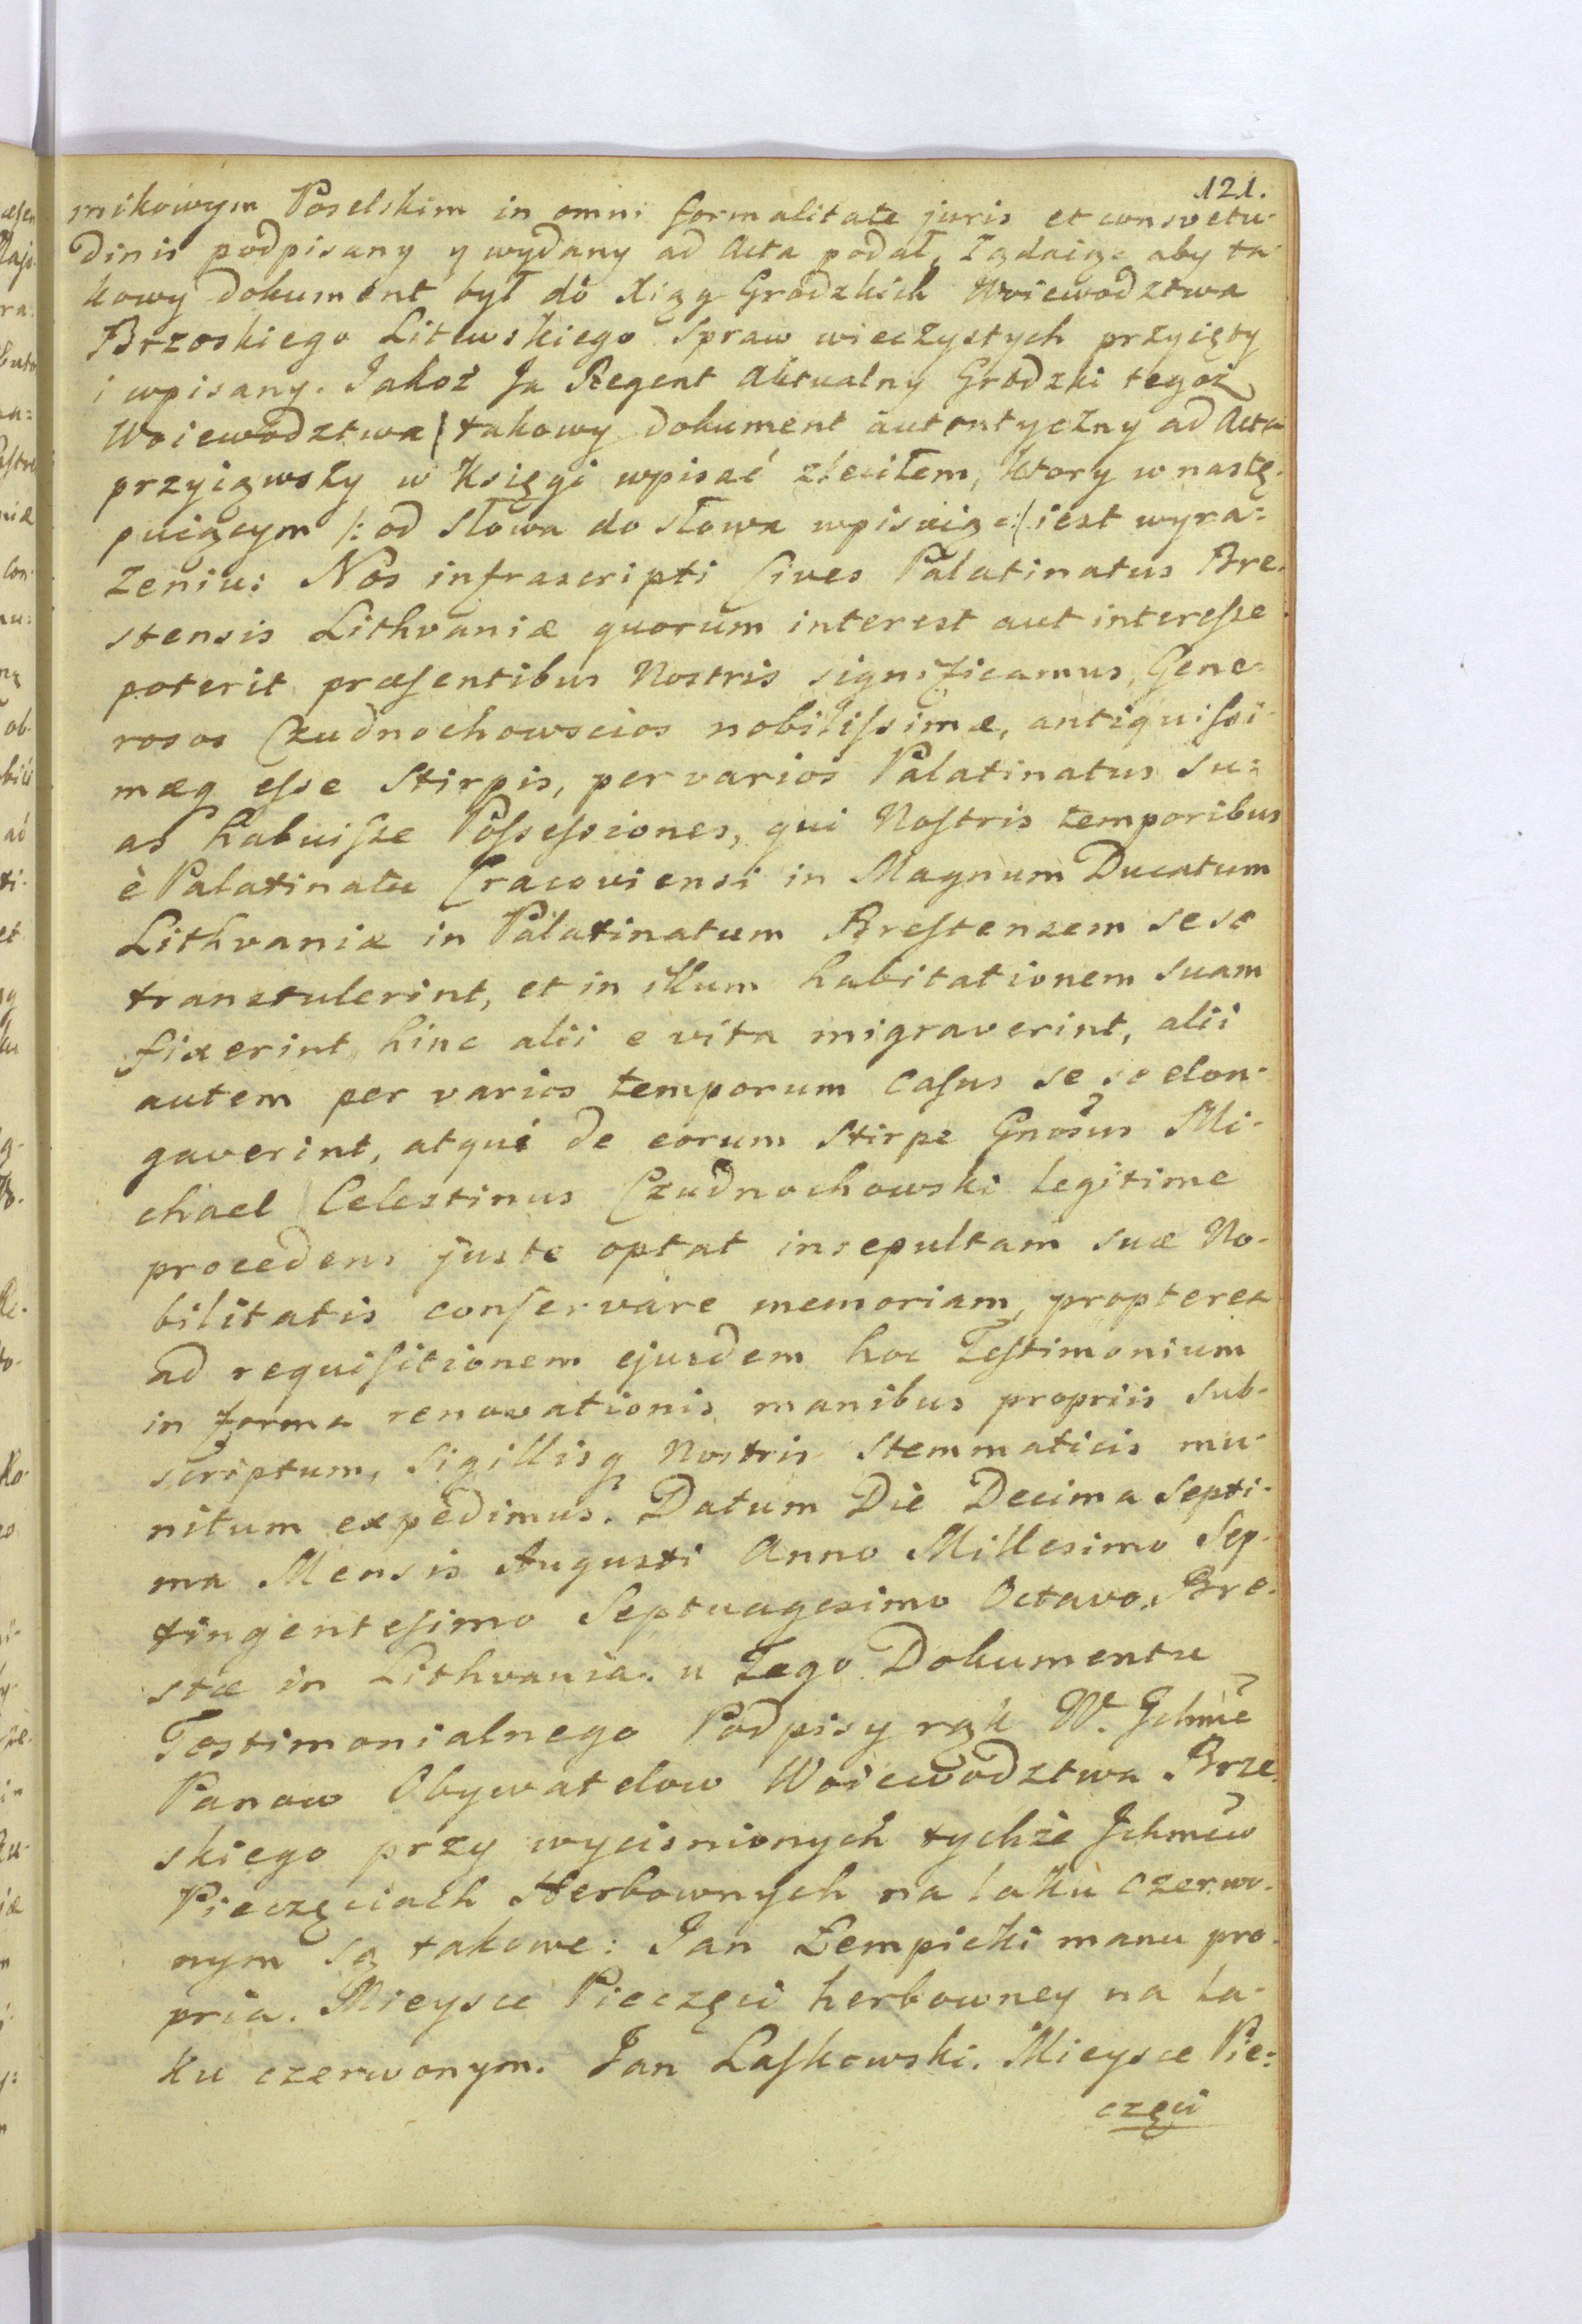 121.
mikowym Poselskim in omni formalitate juris et consvetu-
dinis podpisany y wydany ad Acta podał, Żądaiąc aby ta-
kowy dokument był do Xiąg Grodzkich Woiewodztwa
Brzeskiego Litewskiego Spraw wieczystych przyięty
i wpisany. Jakoż Ja Regent Aktualny Grodzki tegoż
Woiewodztwa takowy dokument autentyczny ad Acta
przyiąwszy w Księgi wpisać zleciłem, ktory w nastę-
puiącym /: od Słowa do słowa wpisuiąc :/ iest wyra=
żeniu: Nos infrascripti Cives Palatinatus Bre-
stensis Lithvaniæ quorum interest aut interesse
poterit præsentibus Nostris significamus, Gene-
rosos Czudnochowscios nobilissimæ, antiquissi-
mæq esse Stirpis, per varios Palatinatus su=
as habuisse Possessiones, qui Nostris temporibus
è Palatinatu Cracoviensi in Magnum Ducatum
Lithvaniæ in Palatinatum Brestensem sese
transtulerint, et in illum habitationem suam
fixerint, hinc alii e vita migraverint, alii
autem per varios temporum casus se se elon-
gaverint, atqui de eorum Stirpe Gnosus Mi-
chael Celestinus Czudnochowski legitime
procedens juste optat insepultam suæ No-
bilitatis conservare memoriam, propterea
ad requisitionem ejusdem hoc Testimonium
in forma renovationis manibus propriis sub-
scriptum, Sigillisq Nostris Stemmaticis mu-
nitum expedimus. Datum Die Decima Septi-
ma Mensis Augusti Anno Millesimo Sep-
tingentesimo Septuagesimo Octavo. Bre-
stæ in Lithvania. u Tego Dokumentu
Testimonialnego Podpisy rąk W. Ichmc
Panow Obywatelow Woiewodztwa Brze-
skiego przy wycisnionych tychże Ichmcw
Pieczęciach Herbownych na laku czerwo-
nym są takowe: Jan Łempicki manu pro-
pria. Mieysce Pieczęci herbowney na la-
ku czerwonym. Jan Laskowski. Mieysce Pie=
częci